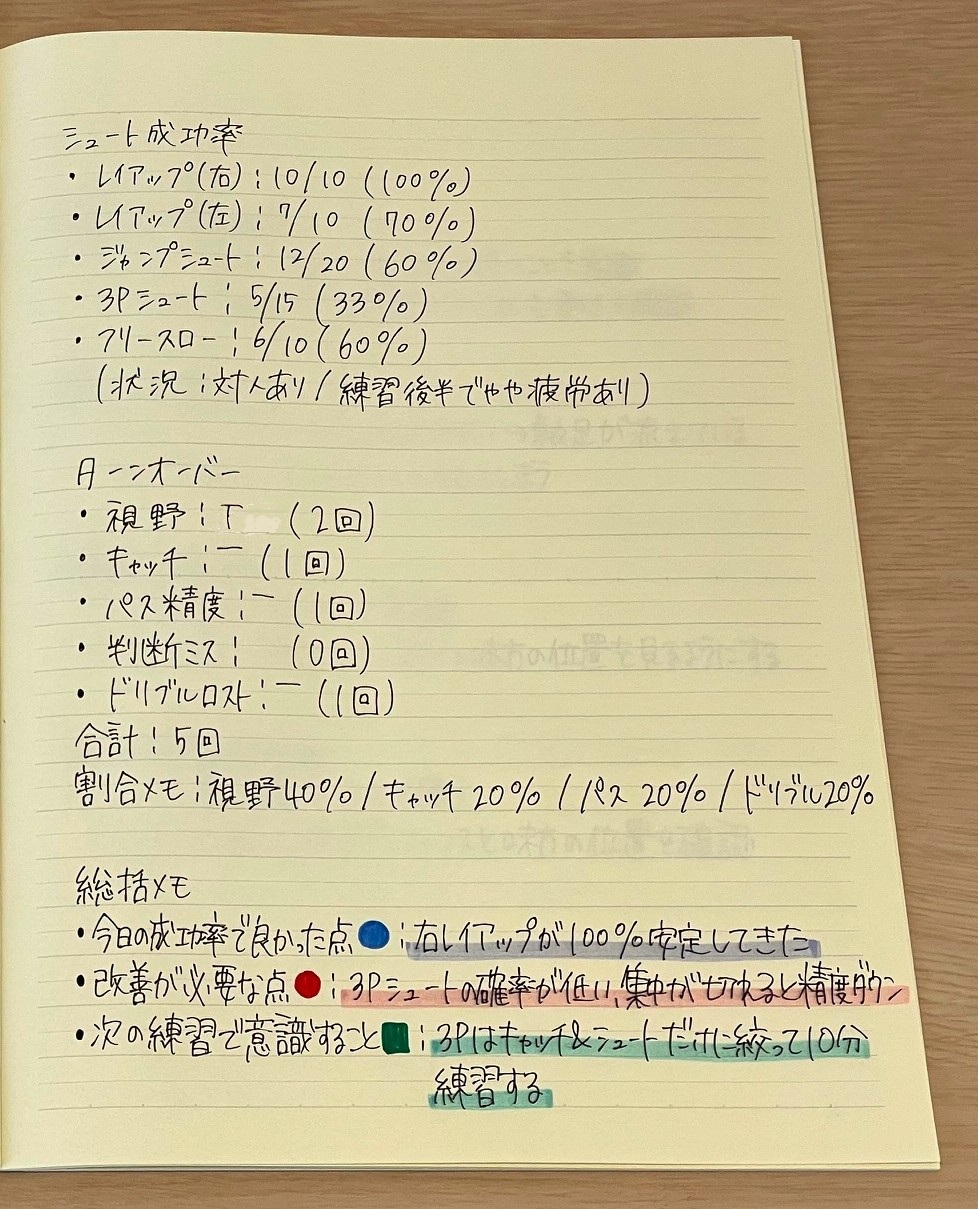 シュート成功率
・レイアップ(右):10/10 (100%)
・レイアップ(左):7/10 (70%)
・ジャンプシュート:12/20 (60%)
・3Pシュート:5/15 (33%)
・フリースロー:6/10 (60%)
(状況:対人あり/練習後半でやや疲労あり)
ターンオーバー
・視野:T (2回)
・キャッチ:一 (1回)
・パス精度:一 (1回)
・判断ミス: (0回)
・ドリブルロスト:一 (1回)
合計:5回
割合メモ:視野40%/キャッチ20%/パス20%/ドリブル20%
総括メモ
・今日の成功率で良かった点🔵:右レイアップが100%安定してきた
・改善が必要な点🔴:3Pシュートの確率が低い,集中が切れると精度ダウン
・次の練習で意識すること🟩:3Pはキャッチ&シュートだけに絞って10分
練習する